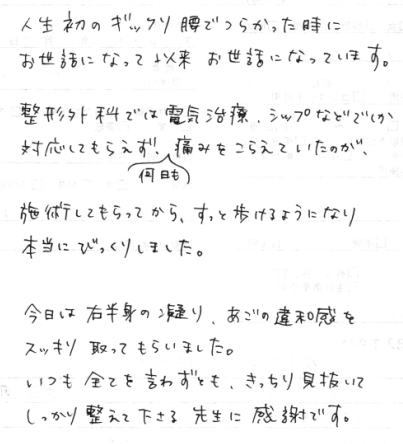 人生初のギックリ腰でつらかった時に
お世話になって以来 お世話になっています。
整形外科では電気治療、シップなどでしか
対応してもらえず、何日も痛みをこらえていたのが、
施術してもらってから、すっと歩けるようになり
本当にびっくりしました。
今日は右半身の凝り、あごの違和感を
スッキリ取ってもらいました。
いつも全てを言わずとも、きっちり見抜いて
しっかり整えて下さる先生に感謝です。